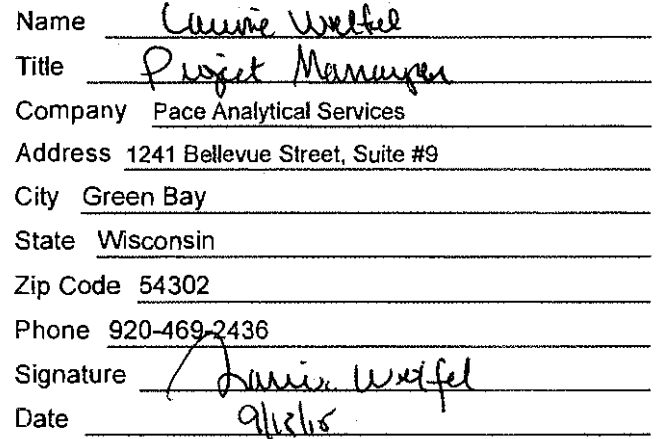 Name Laurie Woelfel
Title Project Manager
Company Pace Analytical Services
Address 1241 Bellevue Street, Suite #9
City Green Bay
State Wisconsin
Zip Code 54302
Phone 920-469-2436
Signature Laurie Woelfel
Date